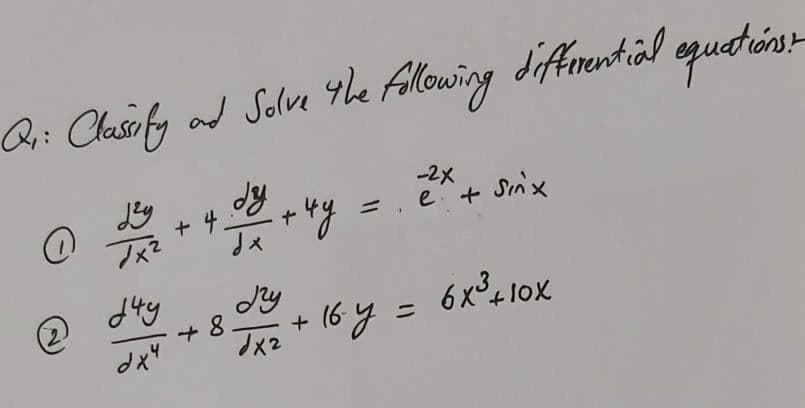 Q₁: Classify and Solve the following differential equations:-
① d²y/dx² + 4 dy/dx + 4y = e^-2x + Sinx
② d⁴y/dx⁴ + 8 d²y/dx² + 16 y = 6x³ + 10x